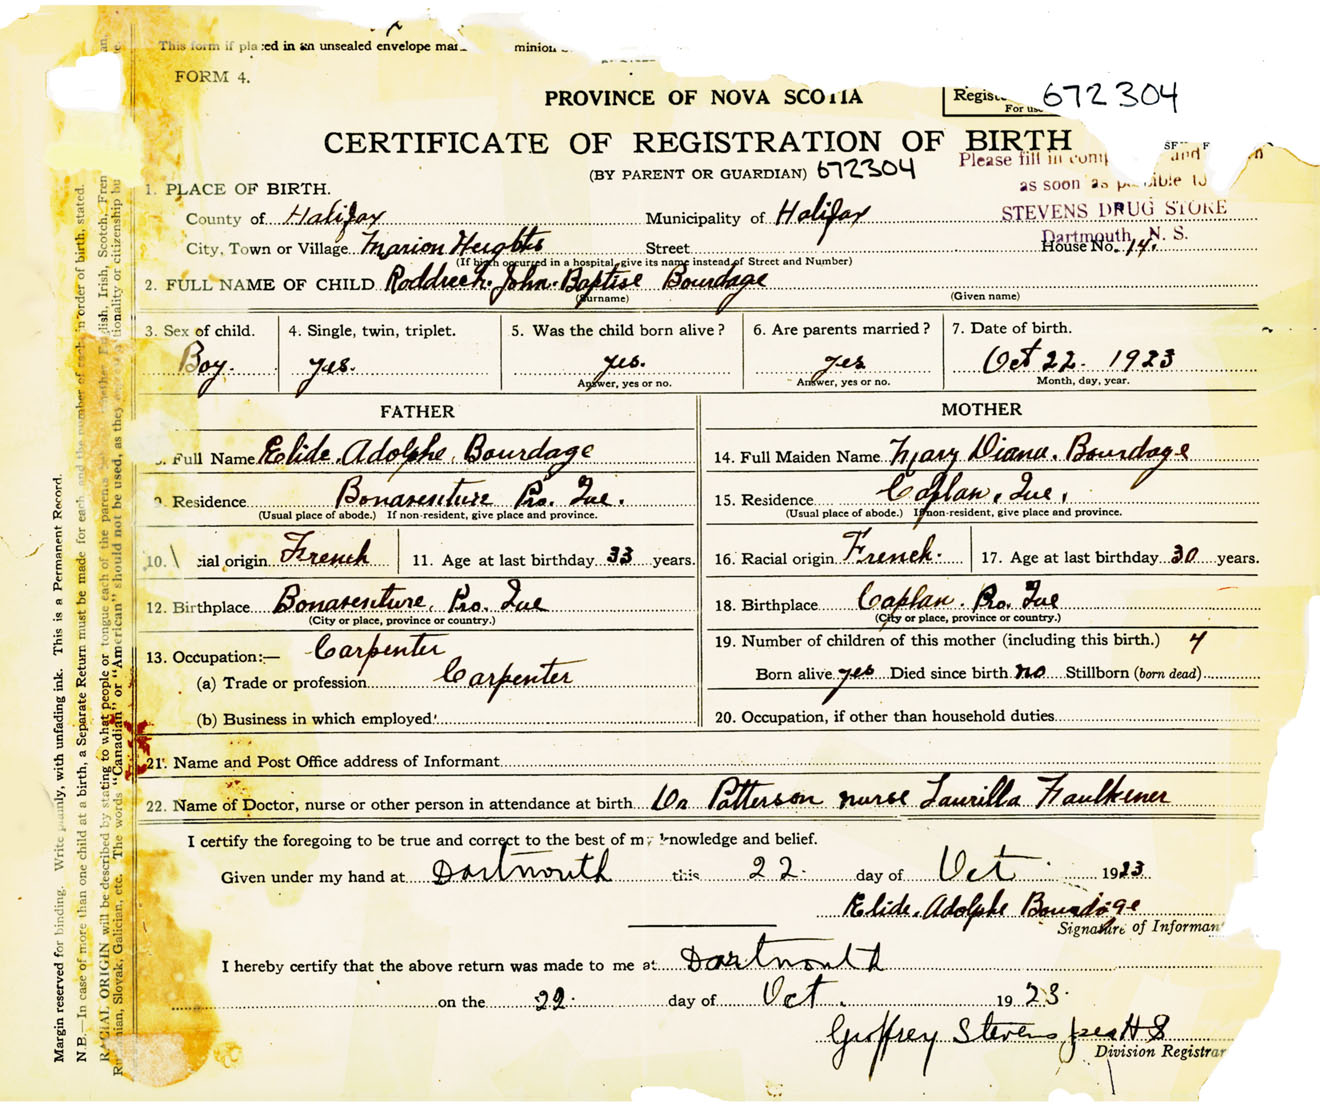 This form if placed in an unsealed envelope mar minion
FORM 4.
PROVINCE OF NOVA SCOTIA
Regist 672304
For us
CERTIFICATE OF REGISTRATION OF BIRTH
(BY PARENT OR GUARDIAN) 672304
Please fill in comp and
as soon as possible to
STEVENS DRUG STORE
Dartmouth, N. S.
1. PLACE OF BIRTH.
County of Halifax Municipality of Halifax
City, Town or Village Marion Heights Street House No. 14.
(If birth occurred in a hospital, give its name instead of Street and Number)
2. FULL NAME OF CHILD Roddrech. John. Baptise Bourdage
(Surname) (Given name)
3. Sex of child. 4. Single, twin, triplet. 5. Was the child born alive? 6. Are parents married? 7. Date of birth.
Boy. yes. yes. yes Oct 22. 1923
Answer, yes or no. Answer, yes or no. Month, day, year.
FATHER MOTHER
Full Name Elide. Adolphe. Bourdage 14. Full Maiden Name Mary Diana. Bourdage
9. Residence Bonaventure Pro. Que. 15. Residence Caplan, Que,
(Usual place of abode.) If non-resident, give place and province. (Usual place of abode.) If non-resident, give place and province.
10. cial origin French 11. Age at last birthday 33 years. 16. Racial origin French. 17. Age at last birthday 30 years.
12. Birthplace Bonaventure, Pro. Que 18. Birthplace Caplan. Pro. Que
(City or place, province or country.) (City or place, province or country.)
13. Occupation:— Carpenter 19. Number of children of this mother (including this birth.) 4
(a) Trade or profession Carpenter Born alive yes Died since birth no Stillborn (born dead)
(b) Business in which employed 20. Occupation, if other than household duties
21. Name and Post Office address of Informant
22. Name of Doctor, nurse or other person in attendance at birth Dr Patterson nurse Laurilla Faulkener
I certify the foregoing to be true and correct to the best of my knowledge and belief.
Given under my hand at Dartmouth this 22. day of Oct 1923
Elide. Adolphe Bourdage
Signature of Informan
I hereby certify that the above return was made to me at Dartmouth
on the 22. day of Oct. 1923.
Geoffrey Stevens per H S
Division Registrar
Margin reserved for binding. Write plainly, with unfading ink. This is a Permanent Record.
N.B.—In case of more than one child at a birth, a Separate Return must be made for each and the number of each in order of birth, stated.
RACIAL ORIGIN will be described by stating to what people or tongue each of the parents English, Irish, Scotch, Fren
nian, Slovak, Galician, etc. The words "Canadian" or "American" should not be used, as they nationality or citizenship bu